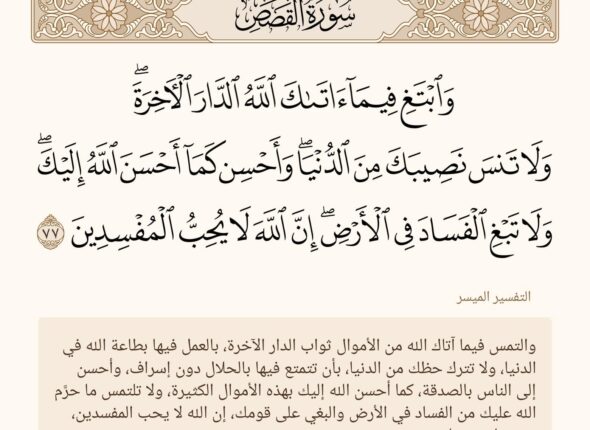 سُورَةُ القَصَصِ
وَٱبۡتَغِ فِيمَآ ءَاتَىٰكَ ٱللَّهُ ٱلدَّارَ ٱلۡأٓخِرَةَۖ
وَلَا تَنسَ نَصِيبَكَ مِنَ ٱلدُّنۡيَاۖ وَأَحۡسِن كَمَآ أَحۡسَنَ ٱللَّهُ إِلَيۡكَۖ
وَلَا تَبۡغِ ٱلۡفَسَادَ فِي ٱلۡأَرۡضِۖ إِنَّ ٱللَّهَ لَا يُحِبُّ ٱلۡمُفۡسِدِينَ ٧٧
التفسير الميسر
والتمس فيما آتاك الله من الأموال ثواب الدار الآخرة، بالعمل فيها بطاعة الله في
الدنيا، ولا تترك حظك من الدنيا، بأن تتمتع فيها بالحلال دون إسراف، وأحسن
إلى الناس بالصدقة، كما أحسن الله إليك بهذه الأموال الكثيرة، ولا تلتمس ما حرَّم
الله عليك من الفساد في الأرض والبغي على قومك، إن الله لا يحب المفسدين،